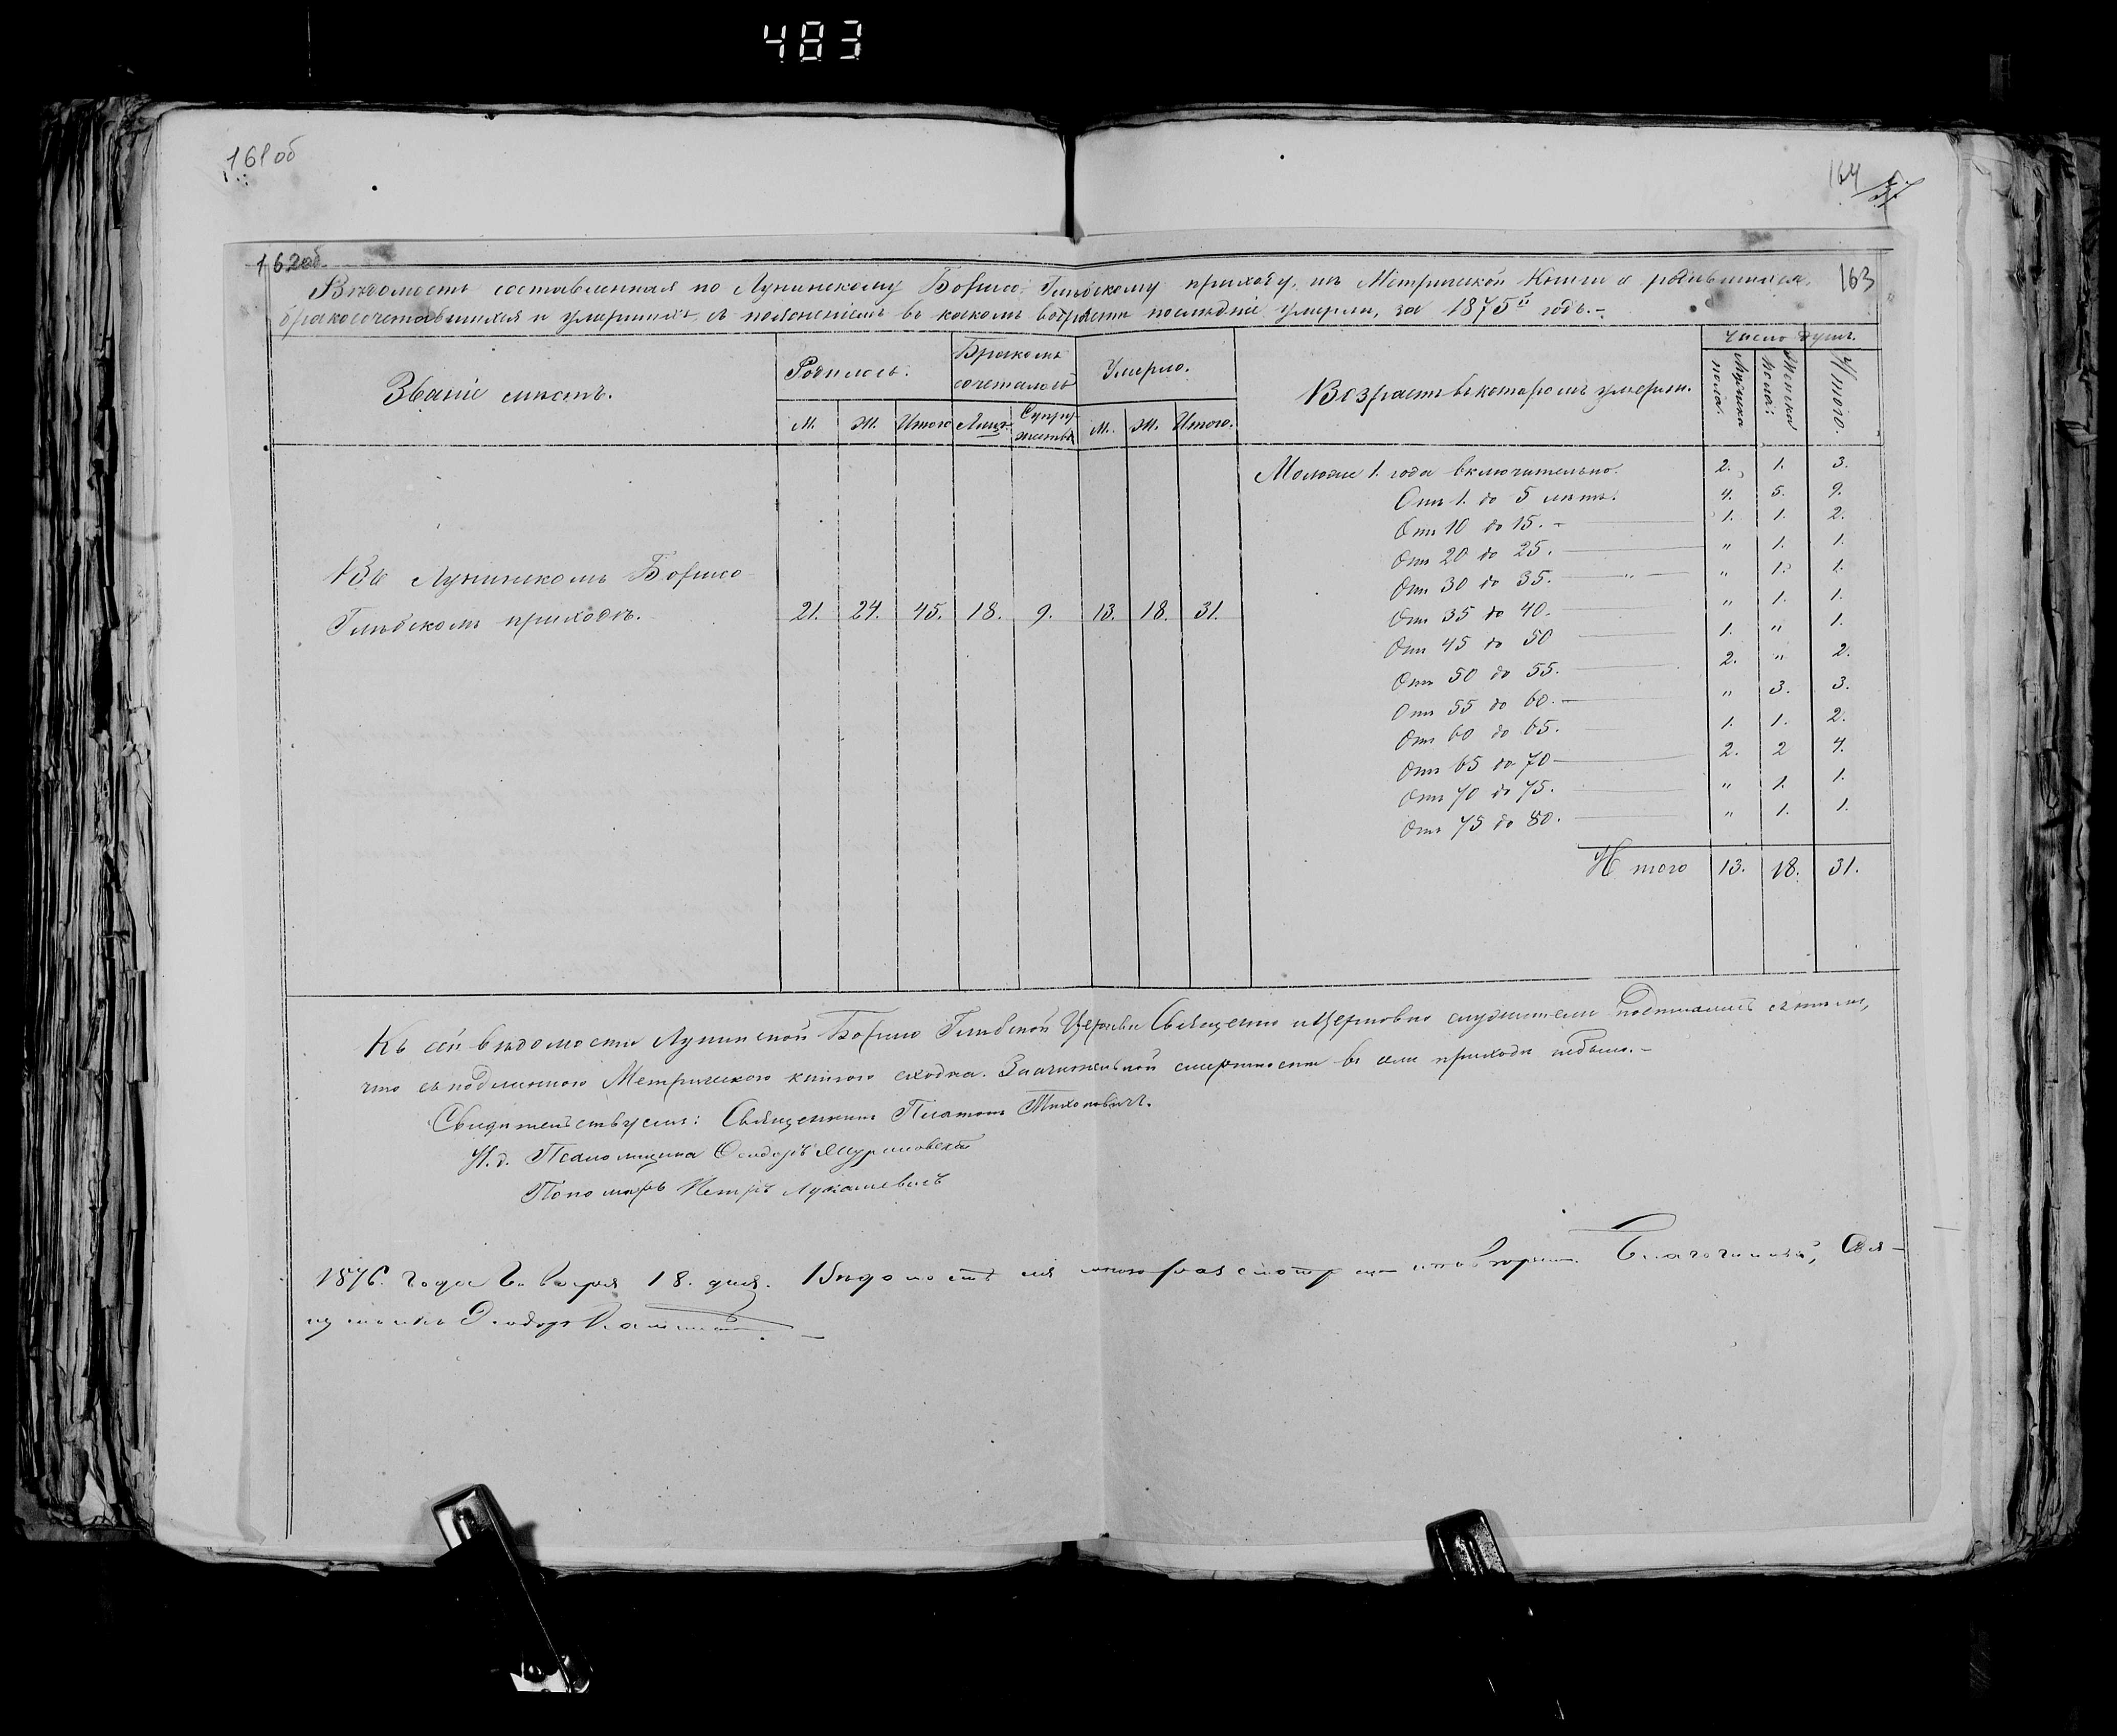 483
161об
164
162об
163
Вѣдомость составленная по Лунинскому Борисо-Глѣбскому приходу, изъ Метрической Книги о родившихся,
бракосочетавшихся и умершихъ, съ поясненіемъ въ какомъ возрастѣ послѣдніе умерли, за 1875й годъ.-
Званіе мѣстъ.
Родилось.
Бракомъ сочеталось
Умерло.
Возрастъ въ которомъ умерли.
Число душъ.
М. Ж. Итого Лицъ. Супружествъ М. Ж. Итого.
Мужска пола. Женска пола. Итого.
Въ Лунинскомъ Борисо
Глѣбскомъ приходѣ. 21. 24. 45. 18. 9. 13. 18. 31.
Моложе 1. года включительно. 2. 1. 3.
Отъ 1. до 5 лѣтъ. 4. 5. 9.
Отъ 10 до 15. - 1. 1. 2.
Отъ 20 до 25. " 1. 1.
Отъ 30 до 35. " 1. 1.
Отъ 35 до 40. " 1. 1.
Отъ 45 до 50 1. " 1.
Отъ 50 до 55. 2. " 2.
Отъ 55 до 60. " 3. 3.
Отъ 60 до 65. 1. 1. 2.
Отъ 65 до 70 2. 2 4.
Отъ 70 до 75. " 1. 1.
Отъ 75 до 80. " 1. 1.
Итого 13. 18. 31.
Къ сей вѣдомости Лунинской Борисо Глѣбской Церкви Священно и Церковно служители подписались въ томъ,
что съ подлинною Метрическою книгою сходна. Значительной смертности въ семъ приходѣ небыло.-
Свидѣтельствуемъ: Священникъ Платонъ Тихоновичъ.
И. д. Псаломщика Ѳеодоръ
Пономарь Петръ Лукашевичъ
1876. года Января 18. дня. Вѣдомость сія мною разсмотрена и повѣрена. Благочинный, Свя-
щенникъ Ѳеодоръ